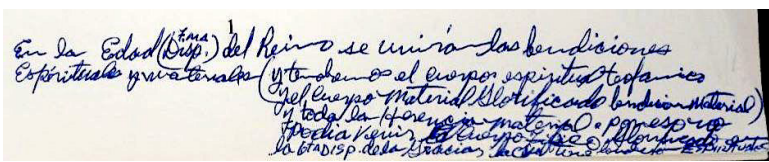 En la Edad (Disp.) 7ma del Reino se unirán las bendiciones
Espirituales y materiales (y tendremos el cuerpo espiritual teofanico
y el cuerpo Material Glorificado bendicion Material)
y toda la Herencia material. por eso no
Podia venir el cuerpo
la 6ta DISP. de la Gracia